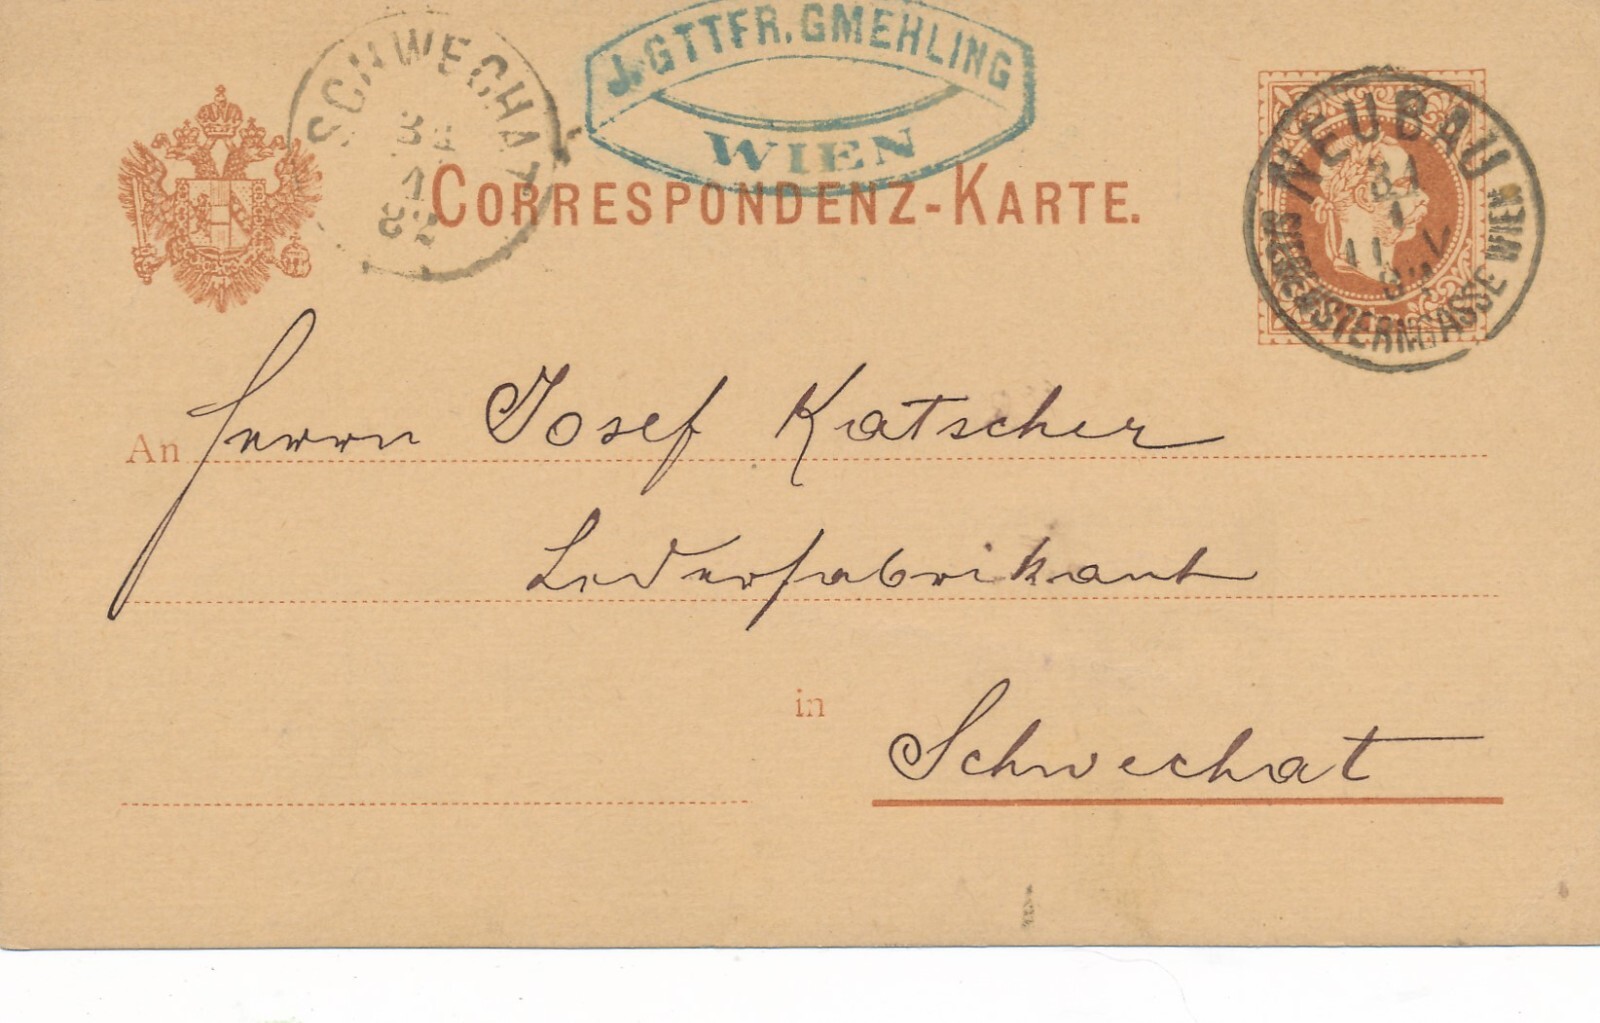 J. GTTFR. GMEHLING
WIEN
SCHWECHAT
31
1
82
CORRESPONDENZ-KARTE.
NEUBAU
31
1
SIEBENSTERNGASSE WIEN
An Herrn Josef Katscher
Lederfabrikant
in
Schwechat